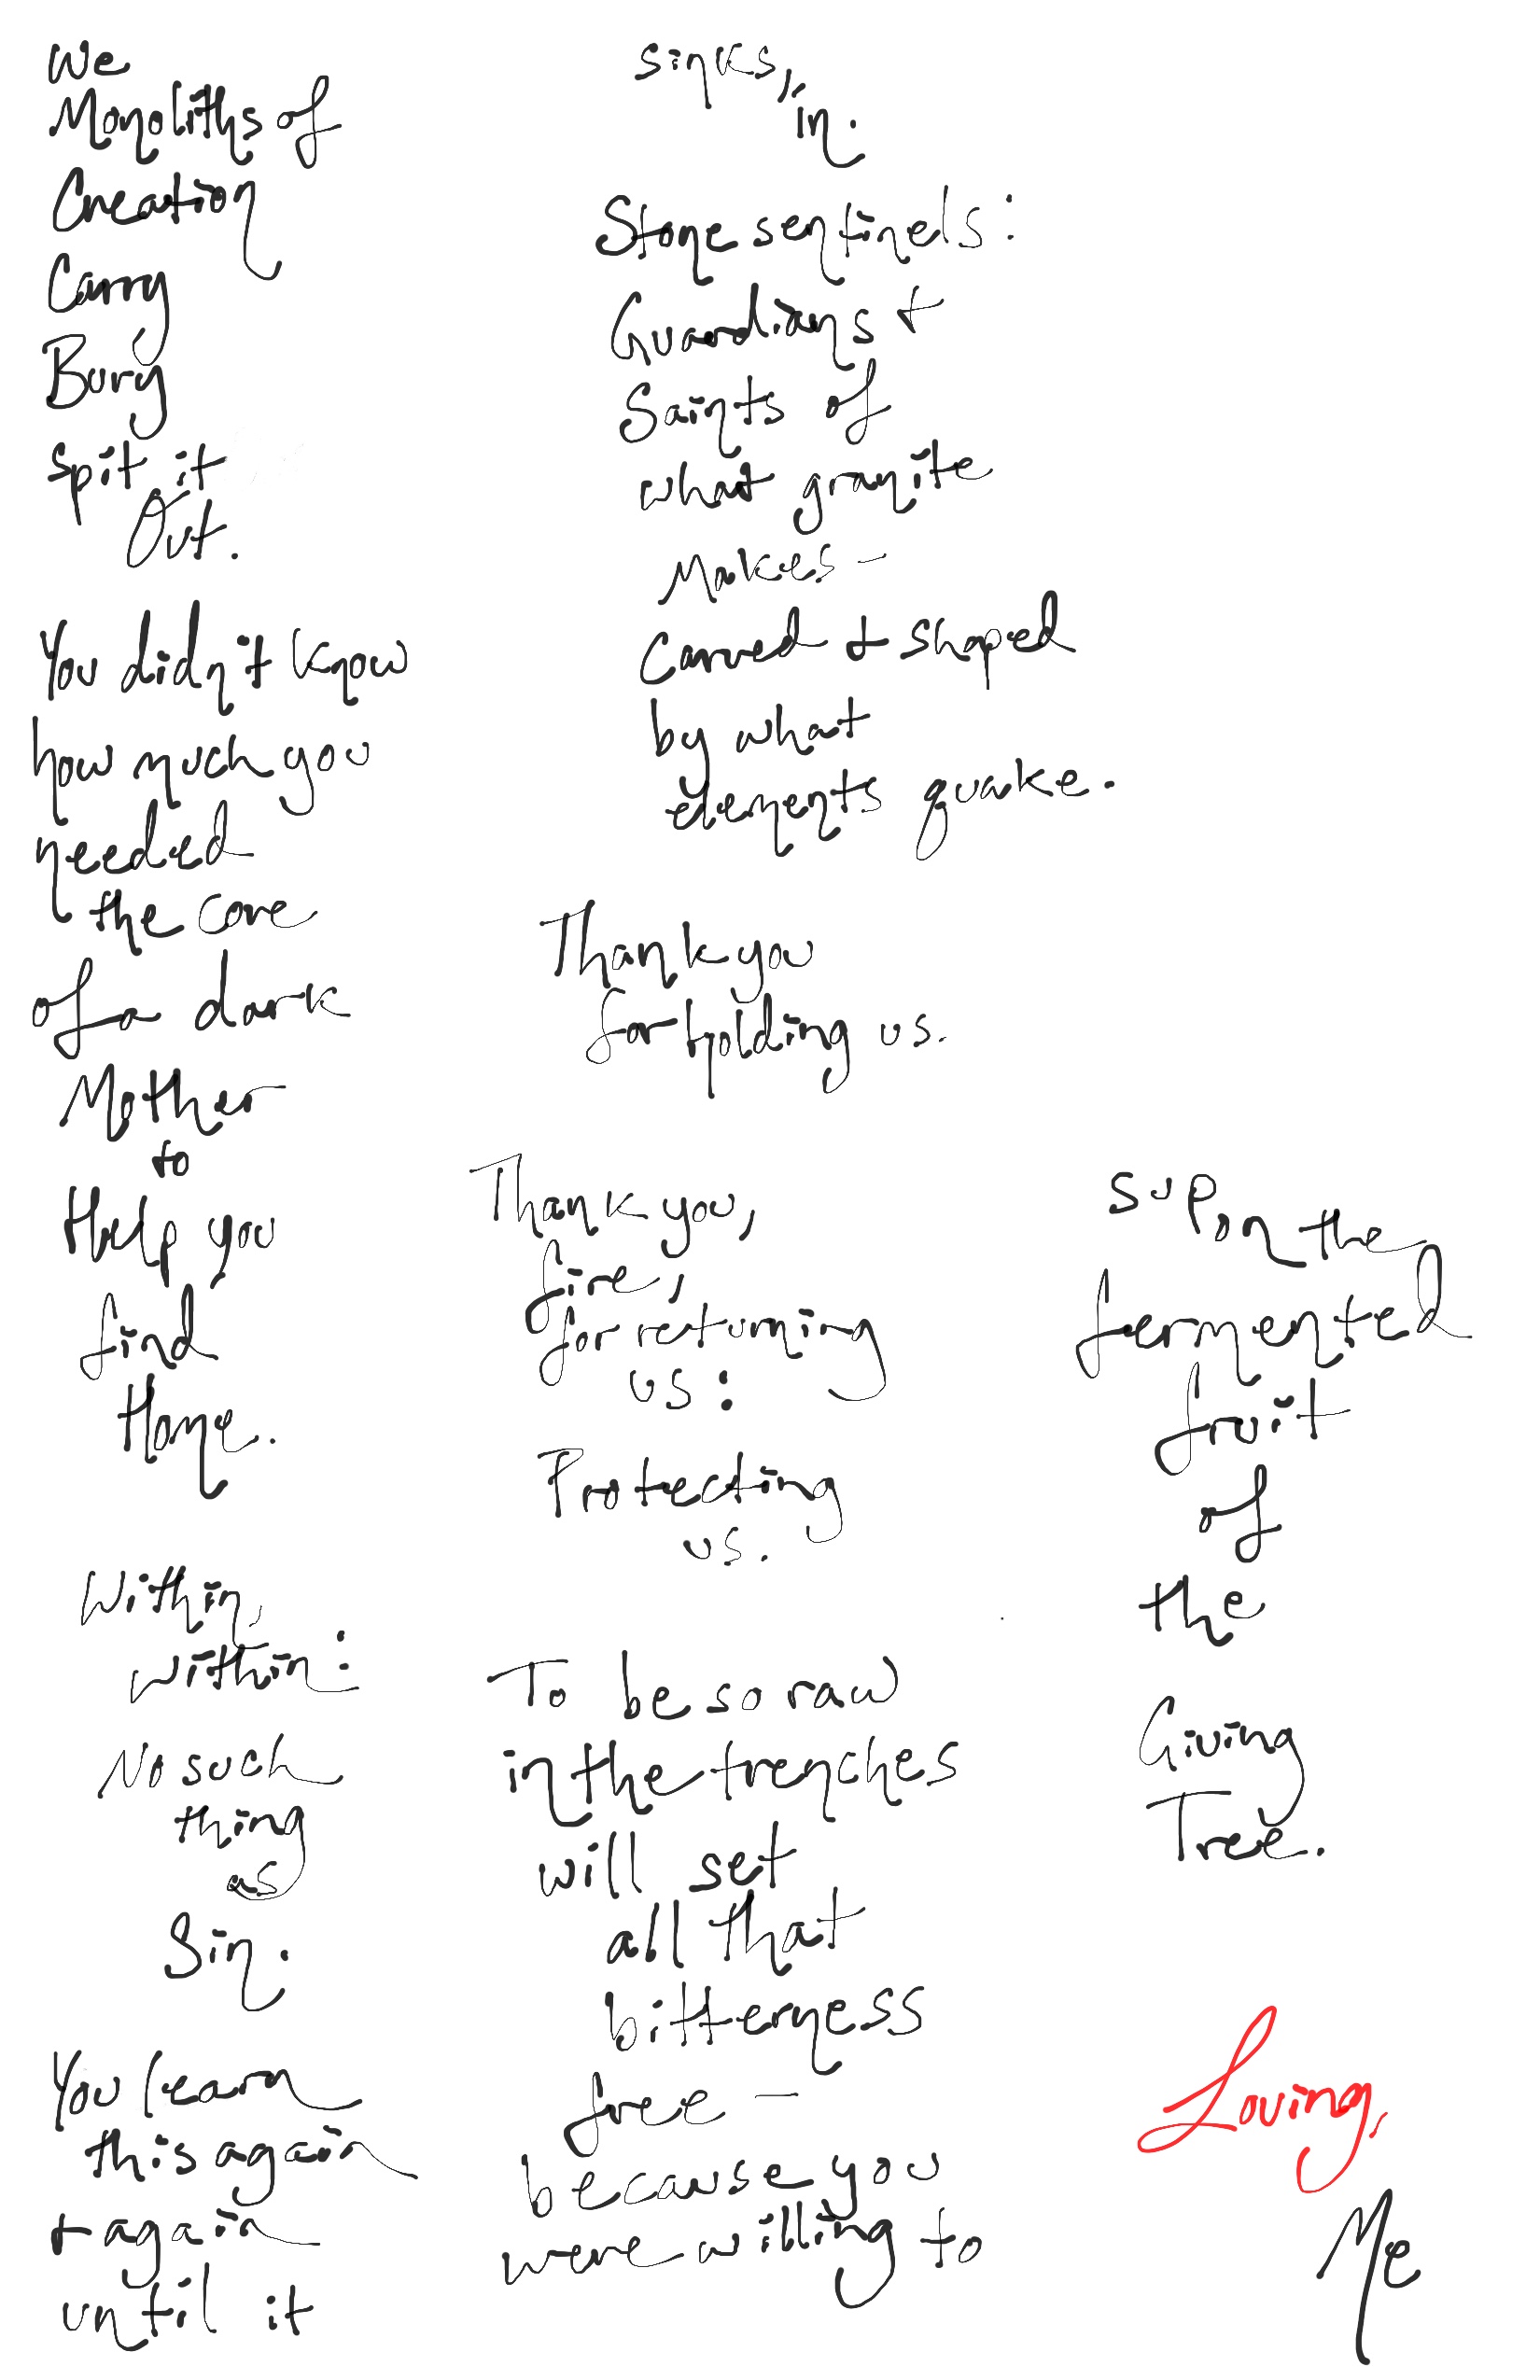 We
Monoliths of
Creation
Carry
Bury
Spit it
Out.
You didn't know
how much you
needed
the core
of a dark
Mother
to
Help you
find
Home.
Within,
within:
No such
thing
as
Sin.
You learn
this again
+ again
until it
sinks,
in.
Stone sentinels:
Guardians +
Saints of
what granite
Makes -
Carved + shaped
by what
elements quake.
Thank you
for holding us.
Thank you,
fire,
for returning
us:
Protecting
us.
To be so raw
in the trenches
will set
all that
bitterness
free -
because you
were willing to
sup on the
fermented
fruit
of
the
Giving
Tree.
Loving,
Me